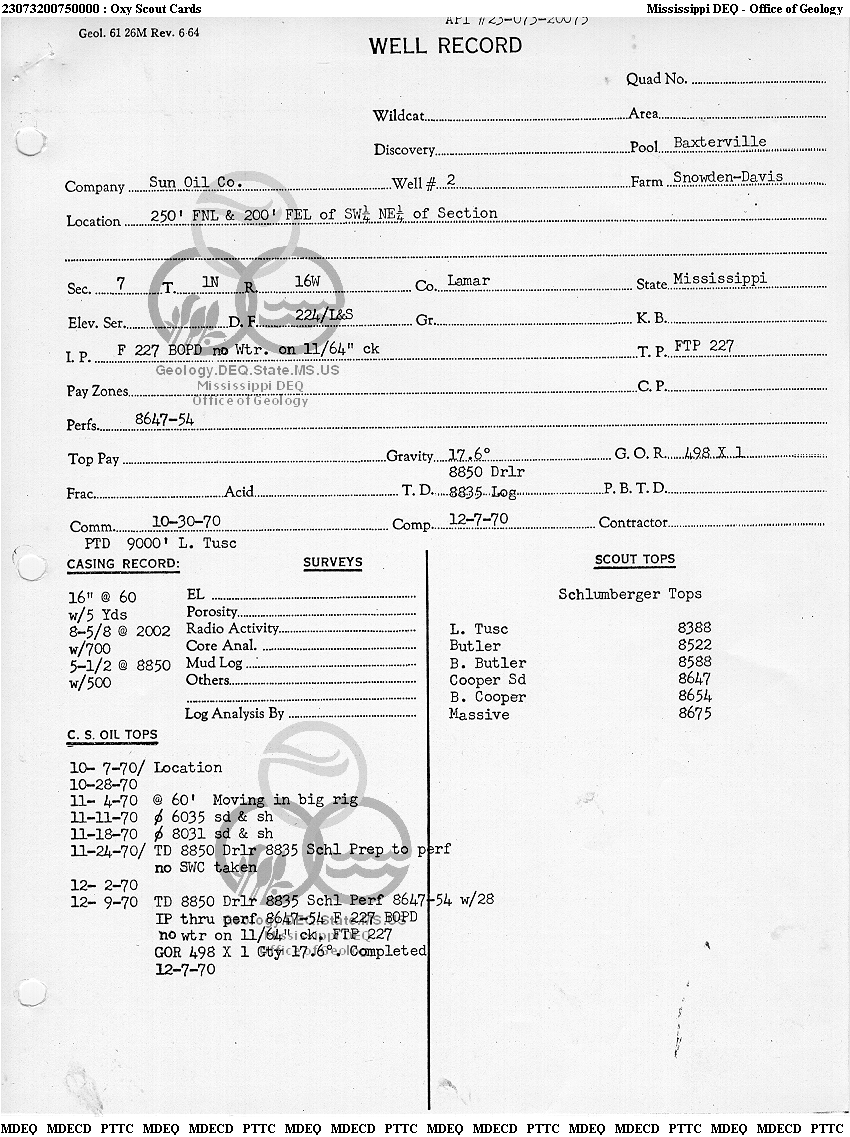 23073200750000 : Oxy Scout Cards Mississippi DEQ - Office of Geology
API #23-073-20075
Geol. 61 26M Rev. 6-64
WELL RECORD
Quad No.
Wildcat Area
Discovery Pool Baxterville
Company Sun Oil Co. Well # 2 Farm Snowden-Davis
Location 250' FNL & 200' FEL of SW¼ NE¼ of Section
Sec. 7 T. 1N R. 16W Co. Lamar State Mississippi
Elev. Ser. D. F. 224/L&S Gr. K. B.
I. P. F 227 BOPD no Wtr. on 11/64" ck T. P. FTP 227
Geology.DEQ.State.MS.US
Mississippi DEQ
Office of Geology
Pay Zones C. P.
Perfs. 8647-54
Top Pay Gravity 17.6° G. O. R. 498 X 1
8850 Drlr
Frac. Acid T. D. 8835 Log P. B. T. D.
Comm. 10-30-70 Comp. 12-7-70 Contractor
PTD 9000' L. Tusc
CASING RECORD: SURVEYS SCOUT TOPS
16" @ 60 EL Schlumberger Tops
w/5 Yds Porosity
8-5/8 @ 2002 Radio Activity L. Tusc 8388
w/700 Core Anal. Butler 8522
5-1/2 @ 8850 Mud Log B. Butler 8588
w/500 Others Cooper Sd 8647
B. Cooper 8654
Log Analysis By Massive 8675
C. S. OIL TOPS
10- 7-70/ Location
10-28-70
11- 4-70 @ 60' Moving in big rig
11-11-70 ø 6035 sd & sh
11-18-70 ø 8031 sd & sh
11-24-70/ TD 8850 Drlr 8835 Schl Prep to perf
no SWC taken
12- 2-70
12- 9-70 TD 8850 Drlr 8835 Schl Perf 8647-54 w/28
IP thru perf 8647-54 F 227 BOPD
Geology.DEQ.State.MS.US
no wtr on 11/64" ck, FTP 227
Mississippi DEQ
GOR 498 X 1 Gty 17.6°. Completed
Office of Geology
12-7-70
MDEQ MDECD PTTC MDEQ MDECD PTTC MDEQ MDECD PTTC MDEQ MDECD PTTC MDEQ MDECD PTTC MDEQ MDECD PTTC